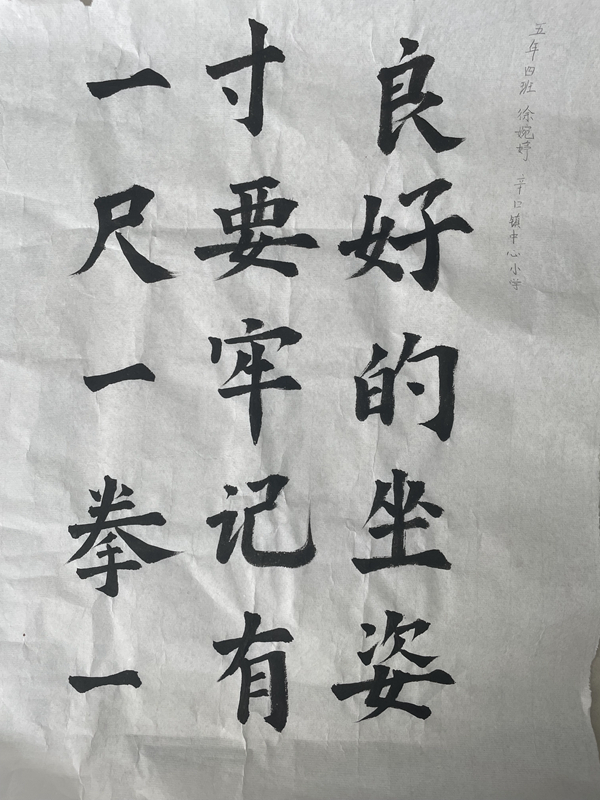 五年四班 徐婉婷 辛口镇中心小学
良好的坐姿
寸要牢记有
一尺一拳一